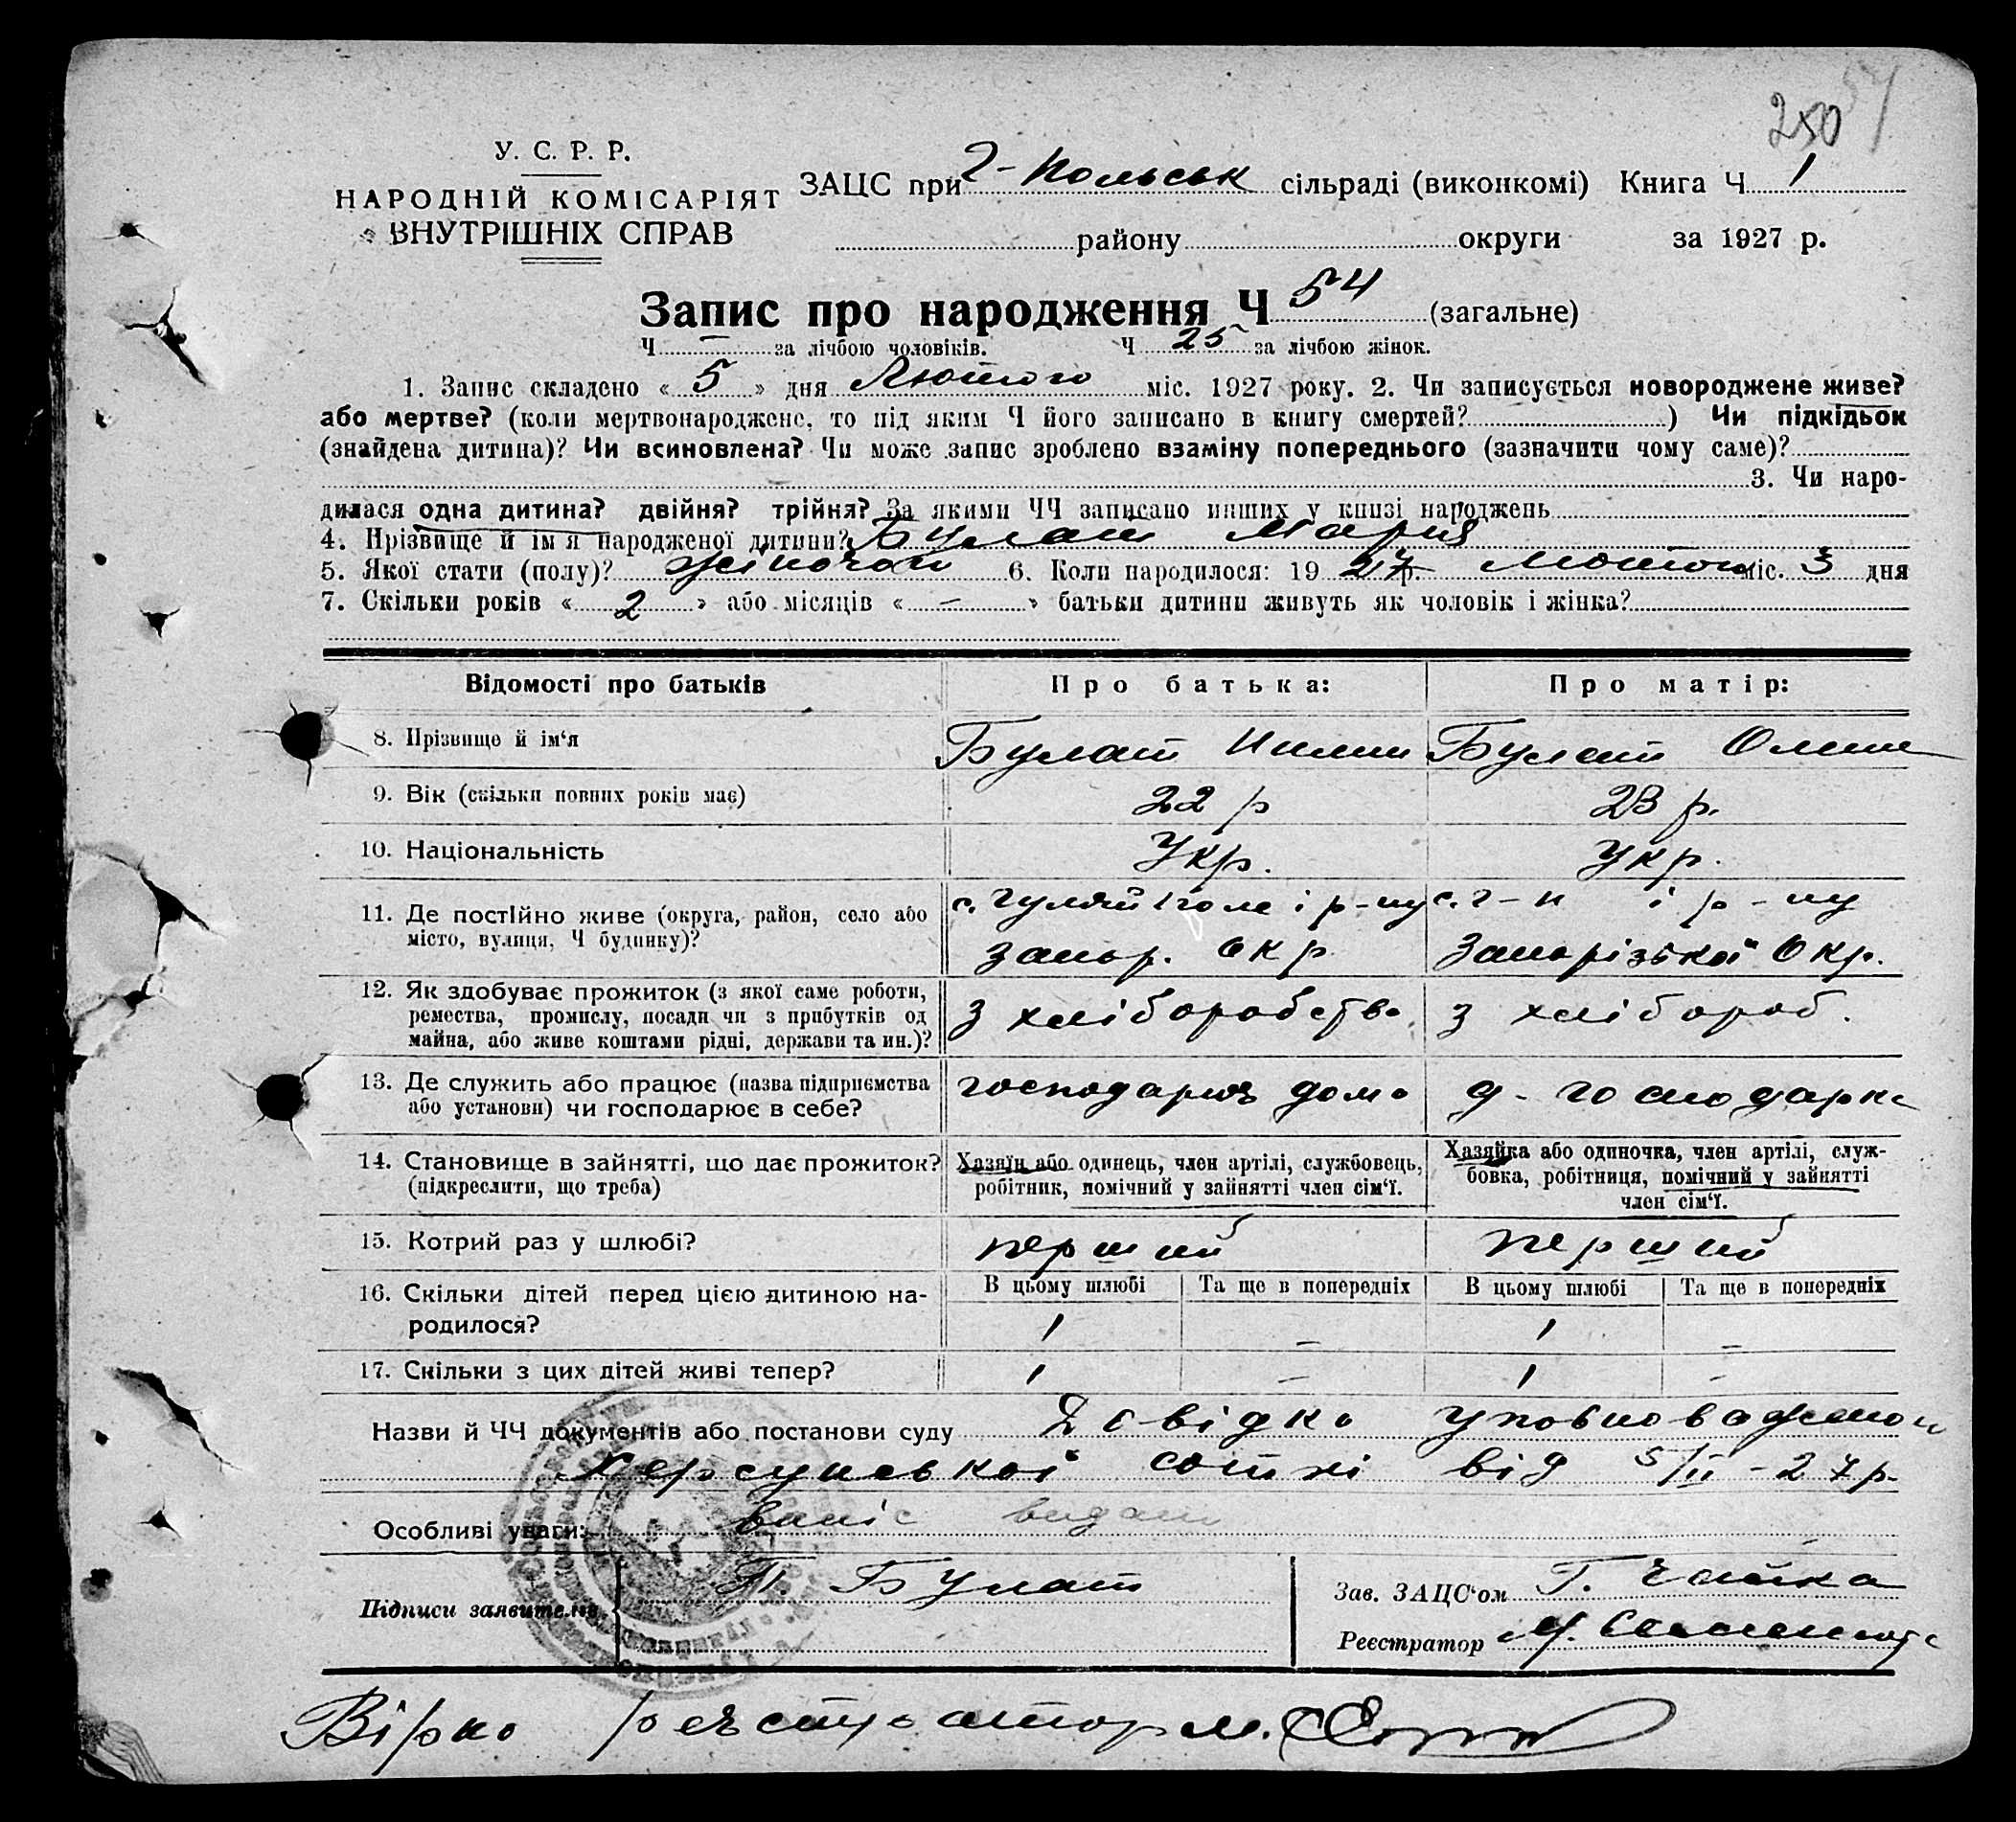 250 54
У. С. Р. Р.
НАРОДНІЙ КОМІСАРІЯТ
ВНУТРІШНІХ СПРАВ
ЗАЦС при Г-Польськ сільраді (виконкомі) Книга Ч 1
району округи за 1927 р.
Запис про народження Ч 54 (загальне)
Ч — за лічбою чоловіків. Ч 25 за лічбою жінок.
1. Запис складено « 5 » дня Лютого міс. 1927 року. 2. Чи записується новороджене живе?
або мертве? (коли мертвонароджене, то під яким Ч його записано в книгу смертей? ) Чи підкідьок
(знайдена дитина)? Чи всиновлена? Чи може запис зроблено взаміну попереднього (зазначити чому саме)?
3. Чи наро-
дилася одна дитина? двійня? трійня? За якими ЧЧ записано инших у книзі народжень
4. Прізвище й ім'я народженої дитини? Булат Мария
5. Якої стати (полу)? жіночого 6. Коли народилося: 19 27 р. Лютого міс. 3 дня
7. Скільки років « 2 » або місяців « — » батьки дитини живуть як чоловік і жінка?
Відомості про батьків Про батька: Про матір:
8. Прізвище й ім'я Булат Булат
9. Вік (скільки повних років має) 22 р 23 р.
10. Національність Укр. Укр.
11. Де постійно живе (округа, район, село або с. Гуляйполе і р-ну с. Г-п і р-ну
місто, вулиця, Ч будинку)? Запор. Окр. Запорізької Окр.
12. Як здобуває прожиток (з якої саме роботи,
ремества, промислу, посади чи з прибутків од з хліборобства з хлібороб.
майна, або живе коштами рідні, держави та ин.)?
13. Де служить або працює (назва підприємства господарює дома д-господарка
або установи) чи господарює в себе?
14. Становище в зайнятті, що дає прожиток? Хазяїн або одинець, член артілі, службовець, Хазяйка або одиночка, член артілі, служ-
(підкреслити, що треба) робітник, помічний у зайнятті член сім'ї. бовка, робітниця, помічний у зайнятті
член сім'ї.
15. Котрий раз у шлюбі? перший перший
16. Скільки дітей перед цією дитиною на- В цьому шлюбі Та ще в попередніх В цьому шлюбі Та ще в попередніх
родилося? 1 — 1 —
17. Скільки з цих дітей живі тепер? 1 — 1 —
Назви й ЧЧ документів або постанови суду Довідка уповноваженого
Херсунської сотні від 5/II-27 р.
Особливі уваги: видат
Підписи заявителів П. Булат
Зав. ЗАЦС'ом Г. Чайка
Реєстратор М.
Вірно реєстратор М.